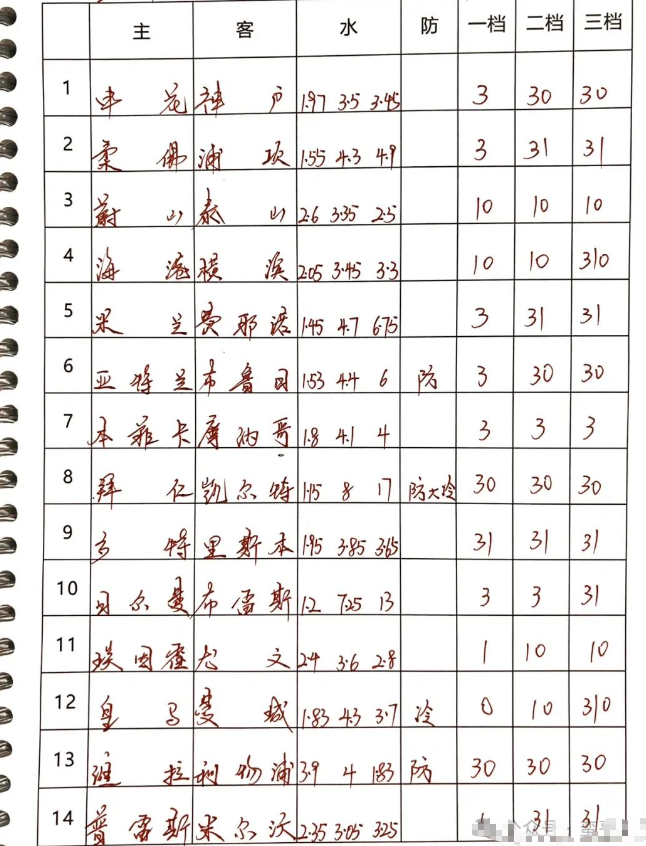 主 客 水 防 一档 二档 三档
1 申花 神户 1.97 3.5 3.45 3 30 30
2 柔佛 浦项 1.55 4.3 4.9 3 31 31
3 蔚山 泰山 2.6 3.35 2.5 10 10 10
4 海港 横滨 2.05 3.45 3.3 10 10 310
5 米兰 费耶诺 1.45 4.7 6.75 3 31 31
6 亚特兰 布鲁日 1.53 4.4 6 防 3 30 30
7 本菲卡 摩纳哥 1.8 4.1 4 3 3 3
8 拜仁 凯尔特 1.15 8 17 防大冷 30 30 30
9 多特 里斯本 1.95 3.85 3.65 31 31 31
10 贝尔曼 布雷斯 1.2 7.25 13 3 3 31
11 埃因霍 尤文 2.4 3.6 2.8 1 10 10
12 皇马 曼城 1.83 4.3 3.7 冷 0 10 310
13 维拉 利物浦 3.9 4 1.83 防 30 30 30
14 普雷斯 米尔沃 2.35 3.05 3.25 31 31